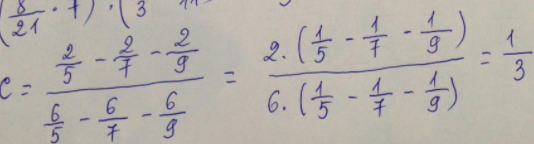 (8/21 · 7) · (3 11
C = (2/5 - 2/7 - 2/9)/(6/5 - 6/7 - 6/9) = (2·(1/5 - 1/7 - 1/9))/(6·(1/5 - 1/7 - 1/9)) = 1/3